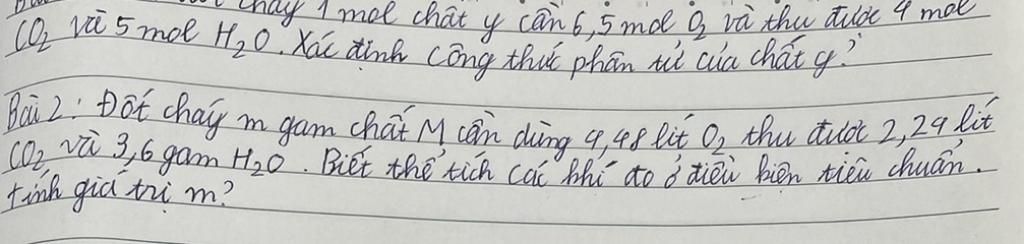 cháy 1 mol chất y cần 6,5 mol O₂ và thu được 4 mol
CO₂ và 5 mol H₂O. Xác định công thức phân tử của chất y?
Bài 2: Đốt cháy m gam chất M cần dùng 4,48 lít O₂ thu được 2,24 lít
CO₂ và 3,6 gam H₂O. Biết thể tích các khí đo ở điều kiện tiêu chuẩn.
tính giá trị m?